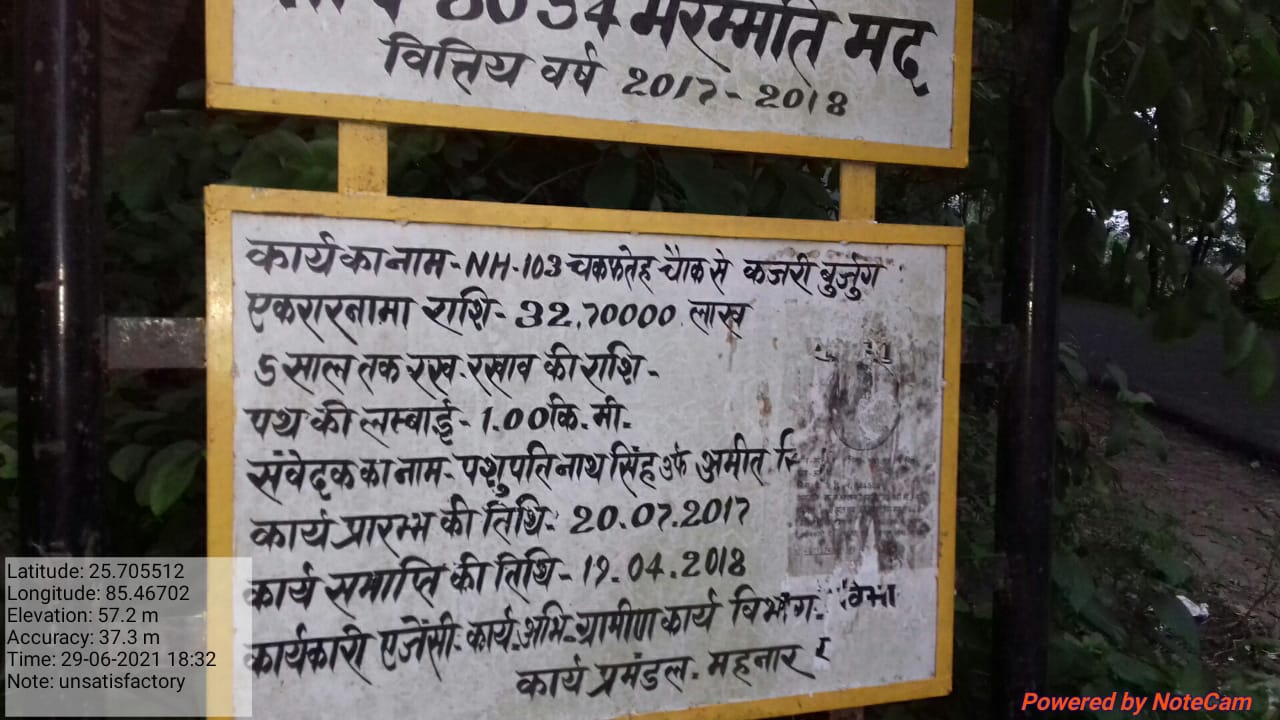 3054 मरम्मति मद
वित्तिय वर्ष 2017-2018
कार्य का नाम-NH-103 चकफतेह चौक से कजरी बुर्जुग
एकरारनामा राशि-32.70000 लाख
5 साल तक रख-रखाव की राशि-
पथ की लम्बाई-1.00 कि.मी.
संवेदक का नाम-पशुपति नाथ सिंह उर्फ अमीत
कार्य प्रारम्भ की तिथि-20.07.2017
कार्य समाप्ति की तिथि-19.04.2018
कार्यकारी एजेंसी-कार्य.अभि-ग्रामीण कार्य विभाग-
कार्य प्रमंडल-महनार
Latitude: 25.705512
Longitude: 85.46702
Elevation: 57.2 m
Accuracy: 37.3 m
Time: 29-06-2021 18:32
Note: unsatisfactory
Powered by NoteCam